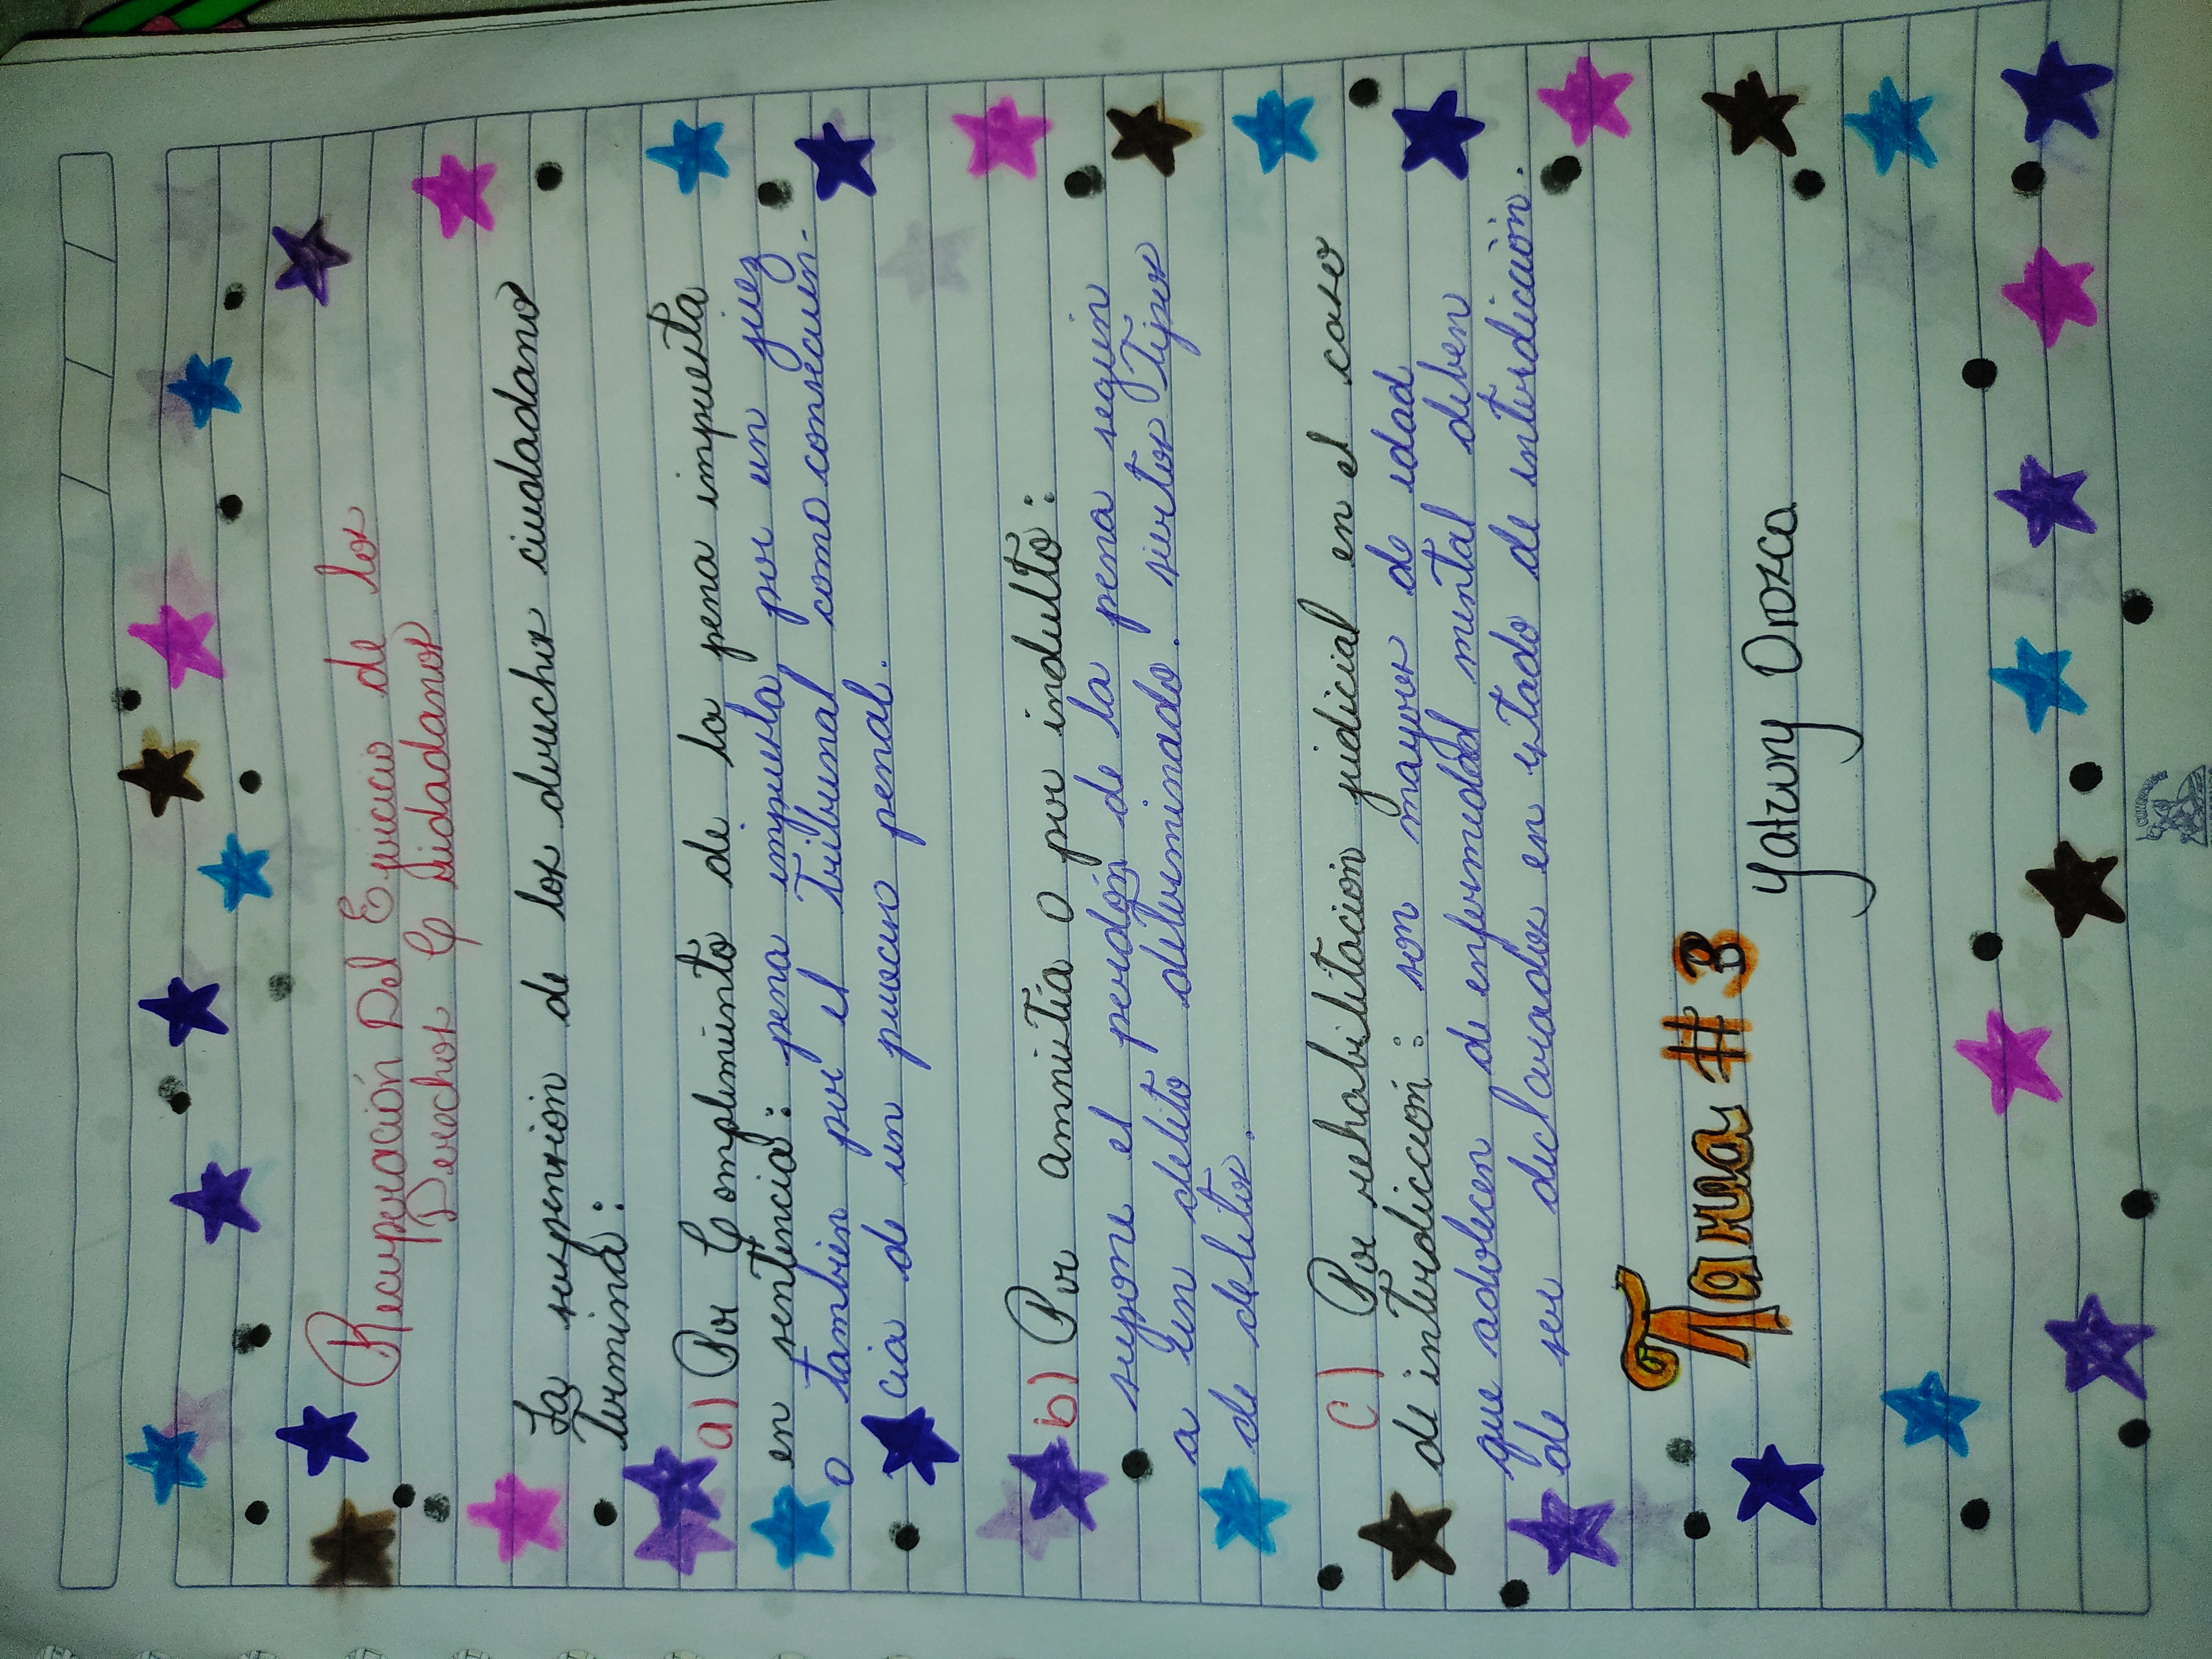 Recuperación Del Ejercicio de los
Derechos Ciudadanos
La suspensión de los derechos ciudadanos
termina:
a) Por Complimiento de la pena impuesta
en sentencia: pena impuesta por un juez
o también por el Tribunal como consecuen-
cia de un proceso penal.
b) Por amnistía o por indulto:
supone el perdón de la pena según
a un delito determinado. ciertos Tipos
de delitos.
c) Por rehabilitación judicial en el caso
de interdicción: son mayores de edad
que adolecen de enfermedad mental deben
de ser declarados en estado de interdicción.
Tarea #3
Yatzury Orozco